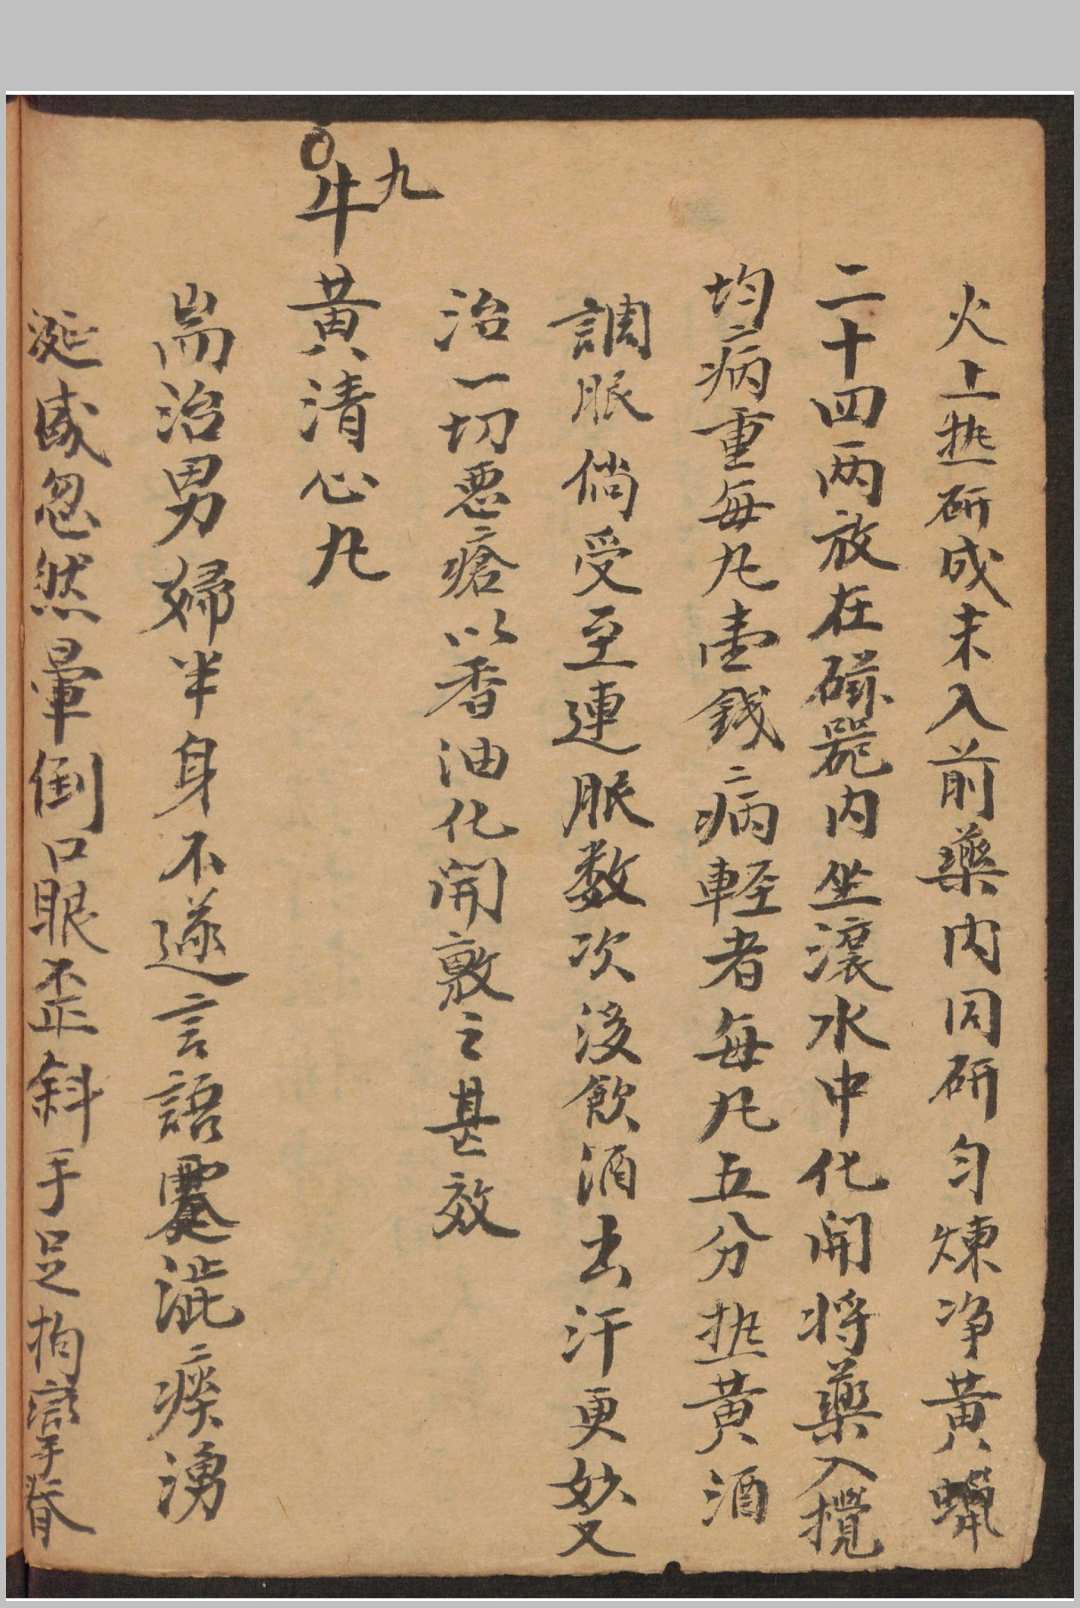 火上热研成末入前藥内同研匀煉净黄蠟
二十四两放在磁器内坐滾水中化開将藥入攪
均病重每丸壹錢二病輕者每丸五分热黄酒
調服倘受至連服数次後飲酒出汗更妙又
治一切恶瘡以香油化開敷之甚效
九
○牛黄清心丸
耑治男婦半身不遂言語蹇澁痰湧
涎盛忽然暈倒口眼歪斜手足拘攣脊